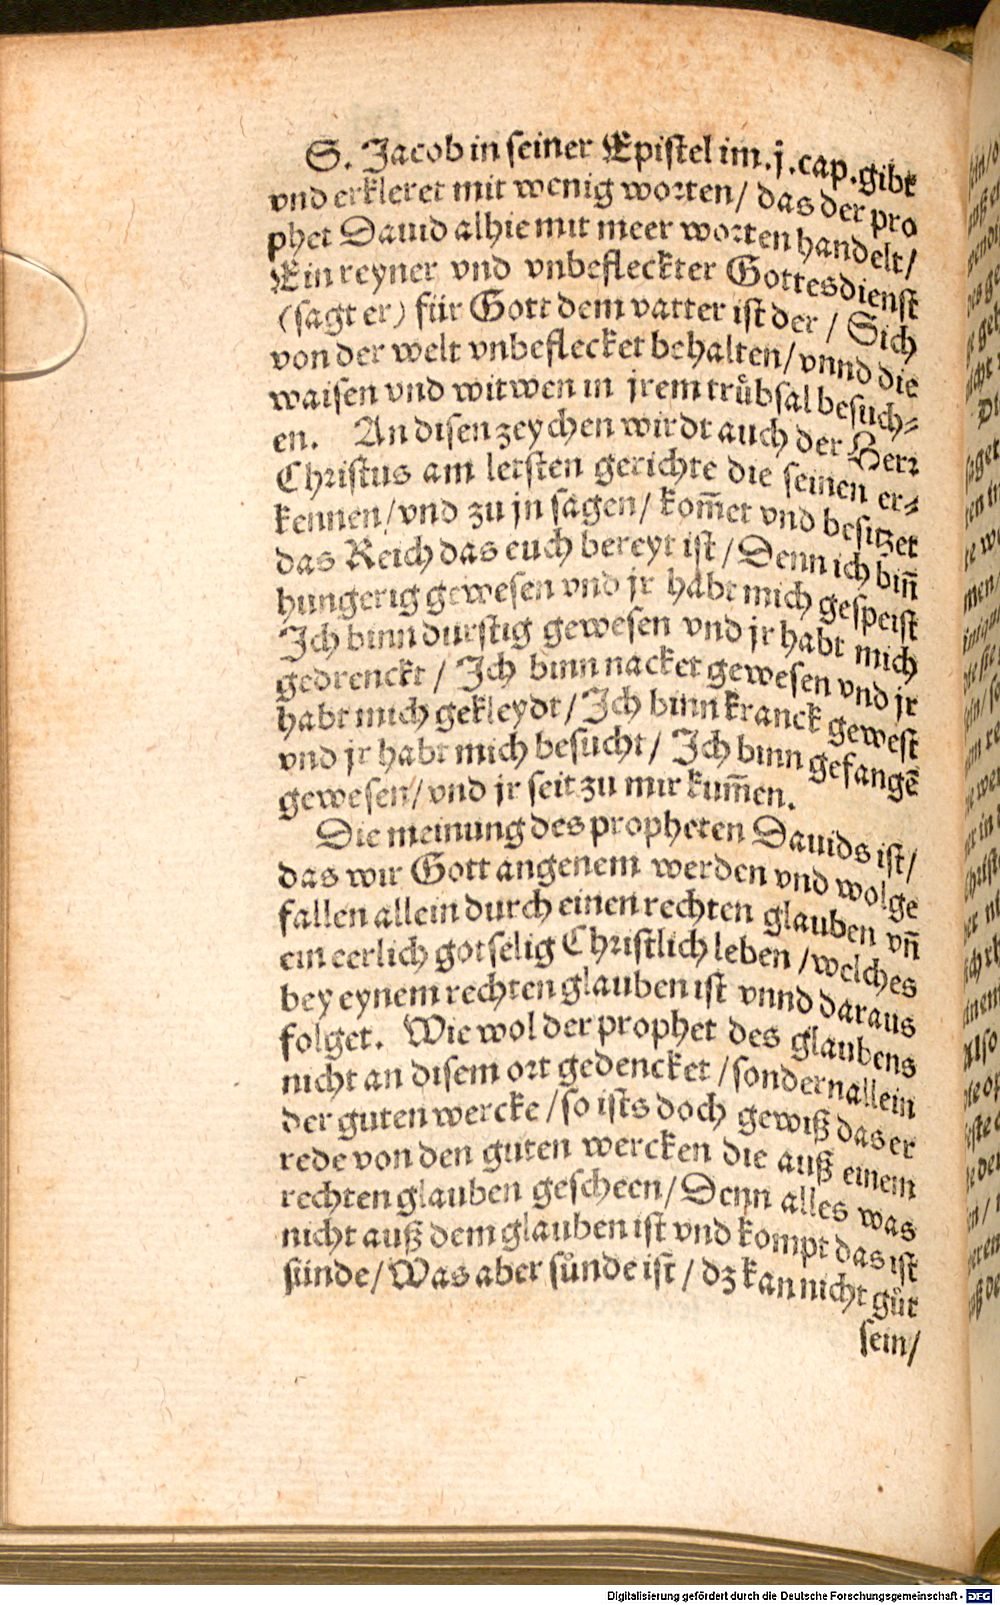 S. Jacob in seiner Epistel im.j.cap.gibt
vnd erkleret mit wenig worten/ das der pro
phet Dauid alhie mit meer worten handelt/
Ein reyner vnd vnbefleckter Gottesdienst
(sagt er) für Gott dem vatter ist der / Sich
von der welt vnbeflecket behalten/ vnnd die
waisen vnd witwen in jrem trůbsal besuch⸗
en. An disen zeychen wirdt auch der Herr
Christus am letsten gerichte die seinen er⸗
kennen/vnd zu jn sagen/ kom̃et vnd besitzet
das Reich das euch bereyt ist / Denn ich biñ
hungerig gewesen vnd jr habt mich gespeist
Ich binn durstig gewesen vnd jr habt mich
gedrenckt / Ich binn nacket gewesen vnd jr
habt mich gekleydt/ Ich binn kranck gewest
vnd jr habt mich besucht/ Ich binn gefangẽ
gewesen/ vnd jr seit zu mir kum̃en.
Die meinung des propheten Dauids ist/
das wir Gott angenem werden vnd wolge
fallen allein durch einen rechten glauben vñ
ein eerlich gotselig Christlich leben /welches
bey eynem rechten glauben ist vnnd daraus
folget. Wie wol der prophet des glaubens
nicht an disem ort gedencket /sondern allein
der guten wercke /so ists doch gewiß das er
rede von den guten wercken die auß einem
rechten glauben gescheen/ Denn alles was
nicht auß dem glauben ist vnd kompt das ist
sünde/ Was aber sůnde ist / dz kan nicht gůt
sein/
Digitalisierung gefördert durch die Deutsche Forschungsgemeinschaft - DFG